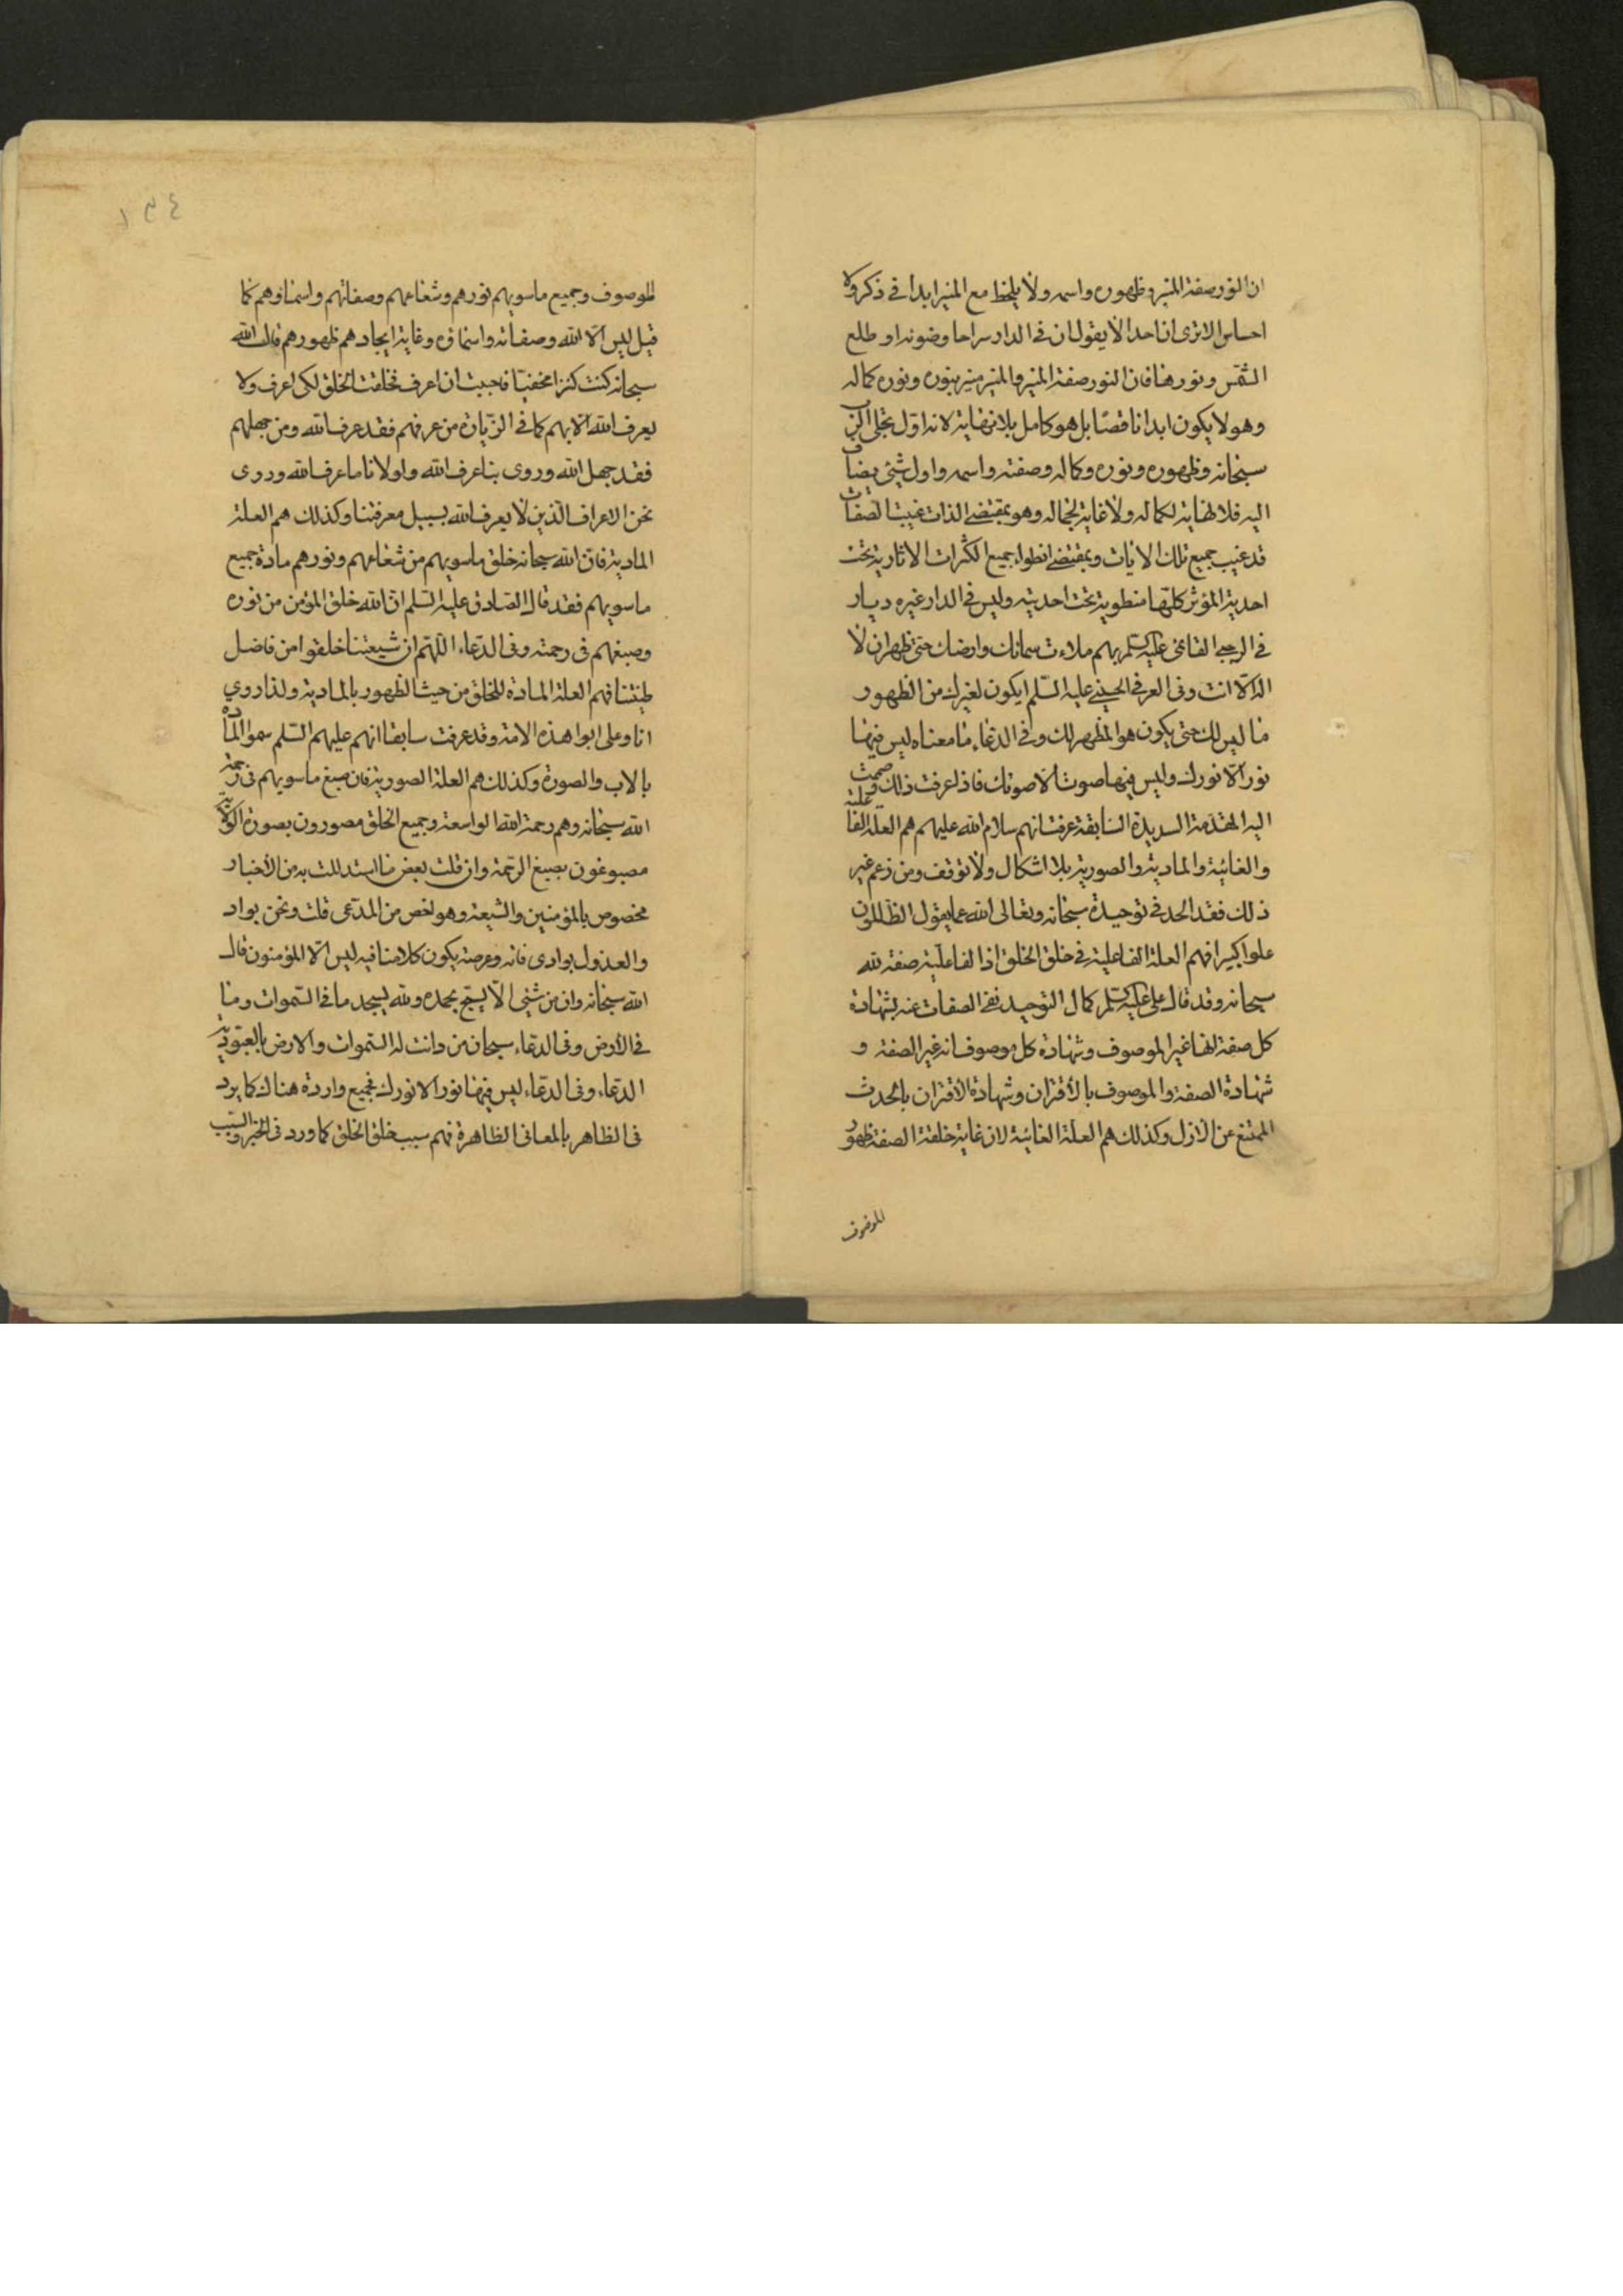 ان النور صفة المنير وظهوره واسمه ولا يلحظ مع المنير ابدا في ذكر ولا
احساس الا ترى ان احدا لا يقول ان في الدار سراجا وضوئه او طلع
الشمس ونورها فان النور صفة المنير والمنير منير بنوره ونوره كماله
وهو لا يكون ابدا ناقصا بل هو كامل بلا نهاية لانه اول تجلى الرب
سبحانه وظهوره ونوره وكماله وصفته واسمه واول شئ يضاف
اليه فلا نهاية لكماله ولا غاية لجماله وهو بمقتضى الذات غيبت الصفات
قد غيب جميع تلك الايات وبمقتضى انطواء جميع الكثرات الاثارية تحت
احدية المؤثر كلها منطوية تحت احديته وليس في الدار غيره ديار
في الرجبي القائمى عليه السلم بهم ملاءت سمائك وارضك حتى ظهر ان لا
اله الا انت وفى العرفى الحسيني عليه السلم ايكون لغيرك من الظهور
ما ليس لك حتى يكون هو المظهر لك وفي الدعاء ما معناه ليس فيها
نور الا نورك وليس فيها صوت الا صوتك فاذا عرفت ذلك وضممت
اليه المقدمة السديدة السابقة عرفت انهم سلام الله عليهم هم العلة الفاعلية
والغائية والمادية والصورية بلا اشكال ولا توقف ومن زعم غير
ذلك فقد الحد في توحيده سبحانه وتعالى الله عما يقول الظالمون
علوا كبيرا فهم العلة الفاعلية في خلق الخلق اذ الفاعلية صفة لله
سبحانه وقد قال على عليه السلم كمال التوحيد نفى الصفات عنه بشهادة
كل صفة انها غير الموصوف وشهادة كل موصوف انه غير الصفة و
شهادة الصفة والموصوف بالاقتران وشهادة الاقتران بالحدث
الممتنع عن الازل وكذلك هم العلة الغائية لان غاية خلقة الصفة ظهور
الموصوف
١٣٤
الموصوف وجميع ماسويهم نورهم وشعاعهم وصفاتهم واسماؤهم كما
قيل ليس الا الله وصفاته واسمائه وغاية ايجادهم ظهورهم قال الله
سبحانه كنت كنزا مخفيا فاحببت ان اعرف فخلقت الخلق لكى اعرف ولا
يعرف الله الا بهم كما في الزيارة من عرفهم فقد عرف الله ومن جهلهم
فقد جهل الله وروى بنا عرف الله ولولانا ما عرف الله وروى
نحن الاعراف الذين لا يعرف الله بسبيل معرفتنا وكذلك هم العلة
المادية فان الله سبحانه خلق ماسويهم من شعاعهم ونورهم مادة جميع
ماسويهم فقد قال الصادق عليه السلم ان الله خلق المؤمن من نوره
وصبغهم فى رحمته وفى الدعاء اللهم ان شيعتنا خلقوا من فاضل
طينتنا فهم العلة المادة للخلق من حيث الظهور بالمادية ولذا روي
انا وعلى ابوا هذه الامة وقد عرفت سابقا انهم عليهم السلم سموا المادة
بالاب والصورة وكذلك هم العلة الصورية فان صبغ ماسويهم في رحمة
الله سبحانه وهم رحمة الله الواسعة وجميع الخلق مصورون بصورة الولاية
مصبوغون بصبغ الرحمة وان قلت بعض ما استدللت به من الاخبار
مخصوص بالمؤمنين والشيعة وهو اخص من المدعى قلت ونحن بواد
والعذول بوادى فانه وعرصة يكون كلامنا فيه ليس الا المؤمنون قال
الله سبحانه وان من شئ الا يسبح بحمده ولله يسجد ما في السموات وما
في الارض وفى الدعاء سبحان من دانت له السموات والارض بالعبودية
الدعاء وفى الدعاء ليس فيها نور الا نورك فجميع واردة هناك كما يرد
فى الظاهر بالمعانى الظاهرة فهم سبب خلق الخلق كما ورد فى الخبر والسبب